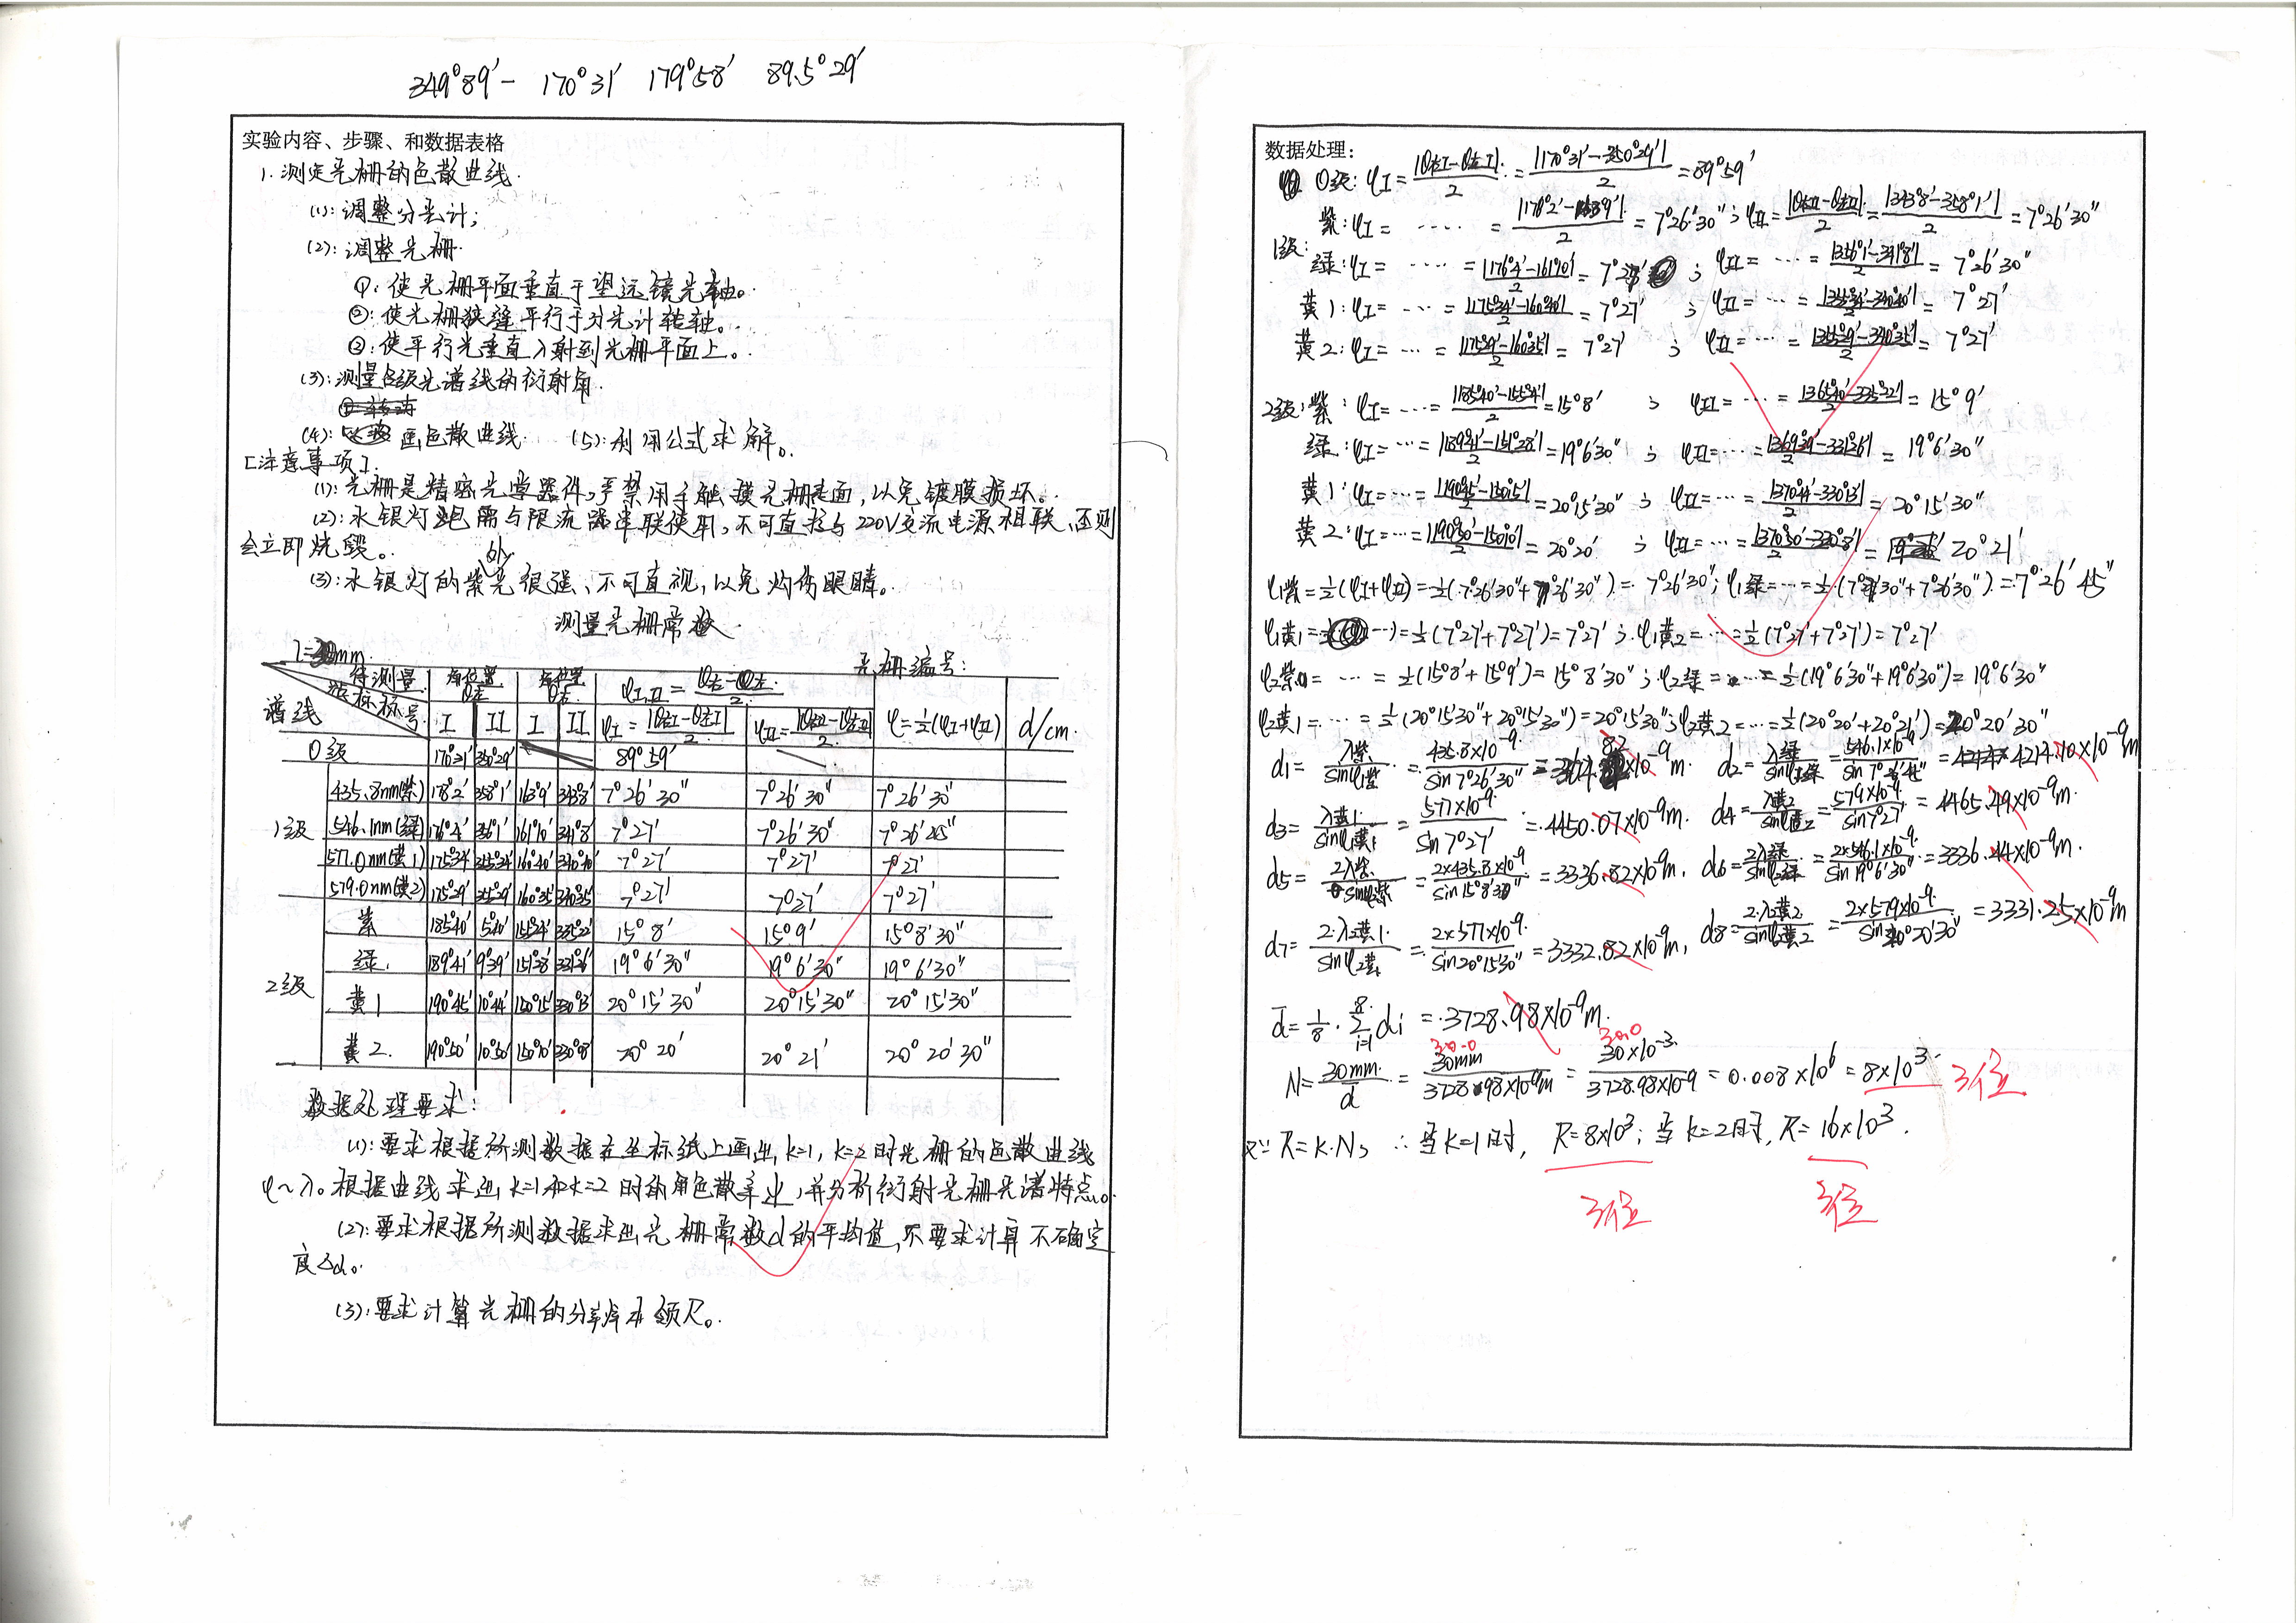 349°89′- 170°31′ 179°58′ 89.5°29′
实验内容、步骤、和数据表格
1. 测定光栅的色散曲线.
(1): 调整分光计;
(2): 调整光栅.
①: 使光栅平面垂直于望远镜光轴。
②: 使光栅狭缝平行于分光计转轴。
③: 使平行光垂直入射到光栅平面上。
(3): 测量各级光谱线的衍射角.
(4): 画色散曲线. (5): 利用公式求解。
[注意事项].
(1): 光栅是精密光学器件,严禁用手触摸光栅表面,以免镀膜损坏。
(2): 水银灯 需与限流器串联使用,不可直接与220V交流电源相联,否则
会立即烧毁。
(3): 水银灯的紫光很强、不可直视,以免灼伤眼睛。
测量光栅常数.
l=30mm. 光栅编号:
谱线 游标标号 待测量 角位置 θ左 角位置 θ右 φI,II = (θ右-θ左)/2
I II I II φI=|θ右I-θ左I|/2 φII=|θ右II-θ左II|/2 φ=½(φI+φII) d/cm.
0级 170°31′ 350°29′ 89°59′
1级 435.8nm(紫) 178°2′ 358°1′ 163°9′ 343°8′ 7°26′30″ 7°26′30″ 7°26′30″
546.1nm(绿) 176°4′ 356°1′ 161°10′ 341°8′ 7°27′ 7°26′30″ 7°26′45″
577.0nm(黄1) 175°34′ 355°34′ 160°40′ 340°40′ 7°27′ 7°27′ 7°27′
579.0nm(黄2) 175°29′ 355°29′ 160°35′ 340°35′ 7°27′ 7°27′ 7°27′
2级 紫 185°40′ 5°40′ 335°22′ 15°8′ 15°9′ 15°8′30″
绿. 189°41′ 9°39′ 151°28′ 331°26′ 19°6′30″ 19°6′30″ 19°6′30″
黄1 190°45′ 10°44′ 150°15′ 330°13′ 20°15′30″ 20°15′30″ 20°15′30″
黄2. 190°50′ 10°50′ 150°10′ 330°8′ 20°20′ 20°21′ 20°20′30″
数据处理要求:
(1): 要求根据所测数据在坐标纸上画出, k=1, k=2时光栅的色散曲线
φ~λ。根据曲线求出, k=1和k=2时的角色散率ψ,并分析衍射光栅光谱特点。
(2): 要求根据所测数据求出光栅常数d的平均值,不要求计算不确定
度Δd。
(3): 要求计算光栅的分辨本领R。
数据处理:
0级: φI=|θ右I-θ左I|/2=|170°31′-350°29′|/2=89°59′
1级: 紫: φI= ····· =|178°2′-163°9′|/2=7°26′30″; φII=|θ右II-θ左II|/2=|343°8′-358°1′|/2=7°26′30″
绿: φI= ···· =|176°4′-161°10′|/2=7°27′ ; φII= ··· =|356°1′-341°8′|/2=7°26′30″
黄1: φI= ··· =|175°34′-160°40′|/2=7°27′ ; φII= ··· =|355°34′-340°40′|/2=7°27′
黄2: φI= ··· =|175°29′-160°35′|/2=7°27′ ; φII= ··· =|355°29′-340°35′|/2=7°27′
2级: 紫: φI= ··· =|185°40′-155°24′|/2=15°8′ ; φII= ··· =|365°40′-335°22′|/2=15°9′
绿: φI= ··· =|189°41′-151°28′|/2=19°6′30″ ; φII= ··· =|369°39′-331°26′|/2=19°6′30″
黄1: φI= ··· =|190°45′-150°15′|/2=20°15′30″ ; φII= ··· =|370°44′-330°13′|/2=20°15′30″
黄2: φI= ··· =|190°50′-150°10′|/2=20°20′ ; φII= ··· =|370°50′-330°8′|/2= 20°21′
φ1紫=½(φI+φII)=½(7°26′30″+7°26′30″)=7°26′30″; φ1绿= ··· =½(7°27′30″+7°26′30″)=7°26′45″
φ1黄1= ··· =½(7°27′+7°27′)=7°27′; φ1黄2= ··· =½(7°27′+7°27′)=7°27′
φ2紫= ··· =½(15°8′+15°9′)=15°8′30″; φ2绿= ··· =½(19°6′30″+19°6′30″)=19°6′30″
φ2黄1= ··· =½(20°15′30″+20°15′30″)=20°15′30″; φ2黄2= ··· =½(20°20′+20°21′)=20°20′30″
d1=λ紫/sinφ1紫=435.8×10⁻⁹/sin7°26′30″= ×10⁻⁹m. d2=λ绿/sinφ1绿=546.1×10⁻⁹/sin7°26′45″=4214.70×10⁻⁹m
d3=λ黄1/sinφ1黄1=577×10⁻⁹/sin7°27′=4450.07×10⁻⁹m. d4=λ黄2/sinφ1黄2=579×10⁻⁹/sin7°27′=4465.49×10⁻⁹m.
d5=2λ紫/sinφ2紫=2×435.8×10⁻⁹/sin15°8′30″=3336.82×10⁻⁹m, d6=2λ绿/sinφ2绿=2×546.1×10⁻⁹/sin19°6′30″=3336.44×10⁻⁹m.
d7=2·λ黄1/sinφ2黄1=2×577×10⁻⁹/sin20°15′30″=3332.82×10⁻⁹m, d8=2·λ黄2/sinφ2黄2=2×579×10⁻⁹/sin20°20′30″=3331.25×10⁻⁹m
d̄=1/8·Σ(i=1→8)di=3728.98×10⁻⁹m.
30.0 30.0
N=30mm/d̄=30mm/3728.98×10⁻⁹m=30×10⁻³/3728.98×10⁻⁹=0.008×10⁶=8×10³. 3位
∵R=k·N, ∴当k=1时, R=8×10³; 当k=2时, R=16×10³.
3位 3位